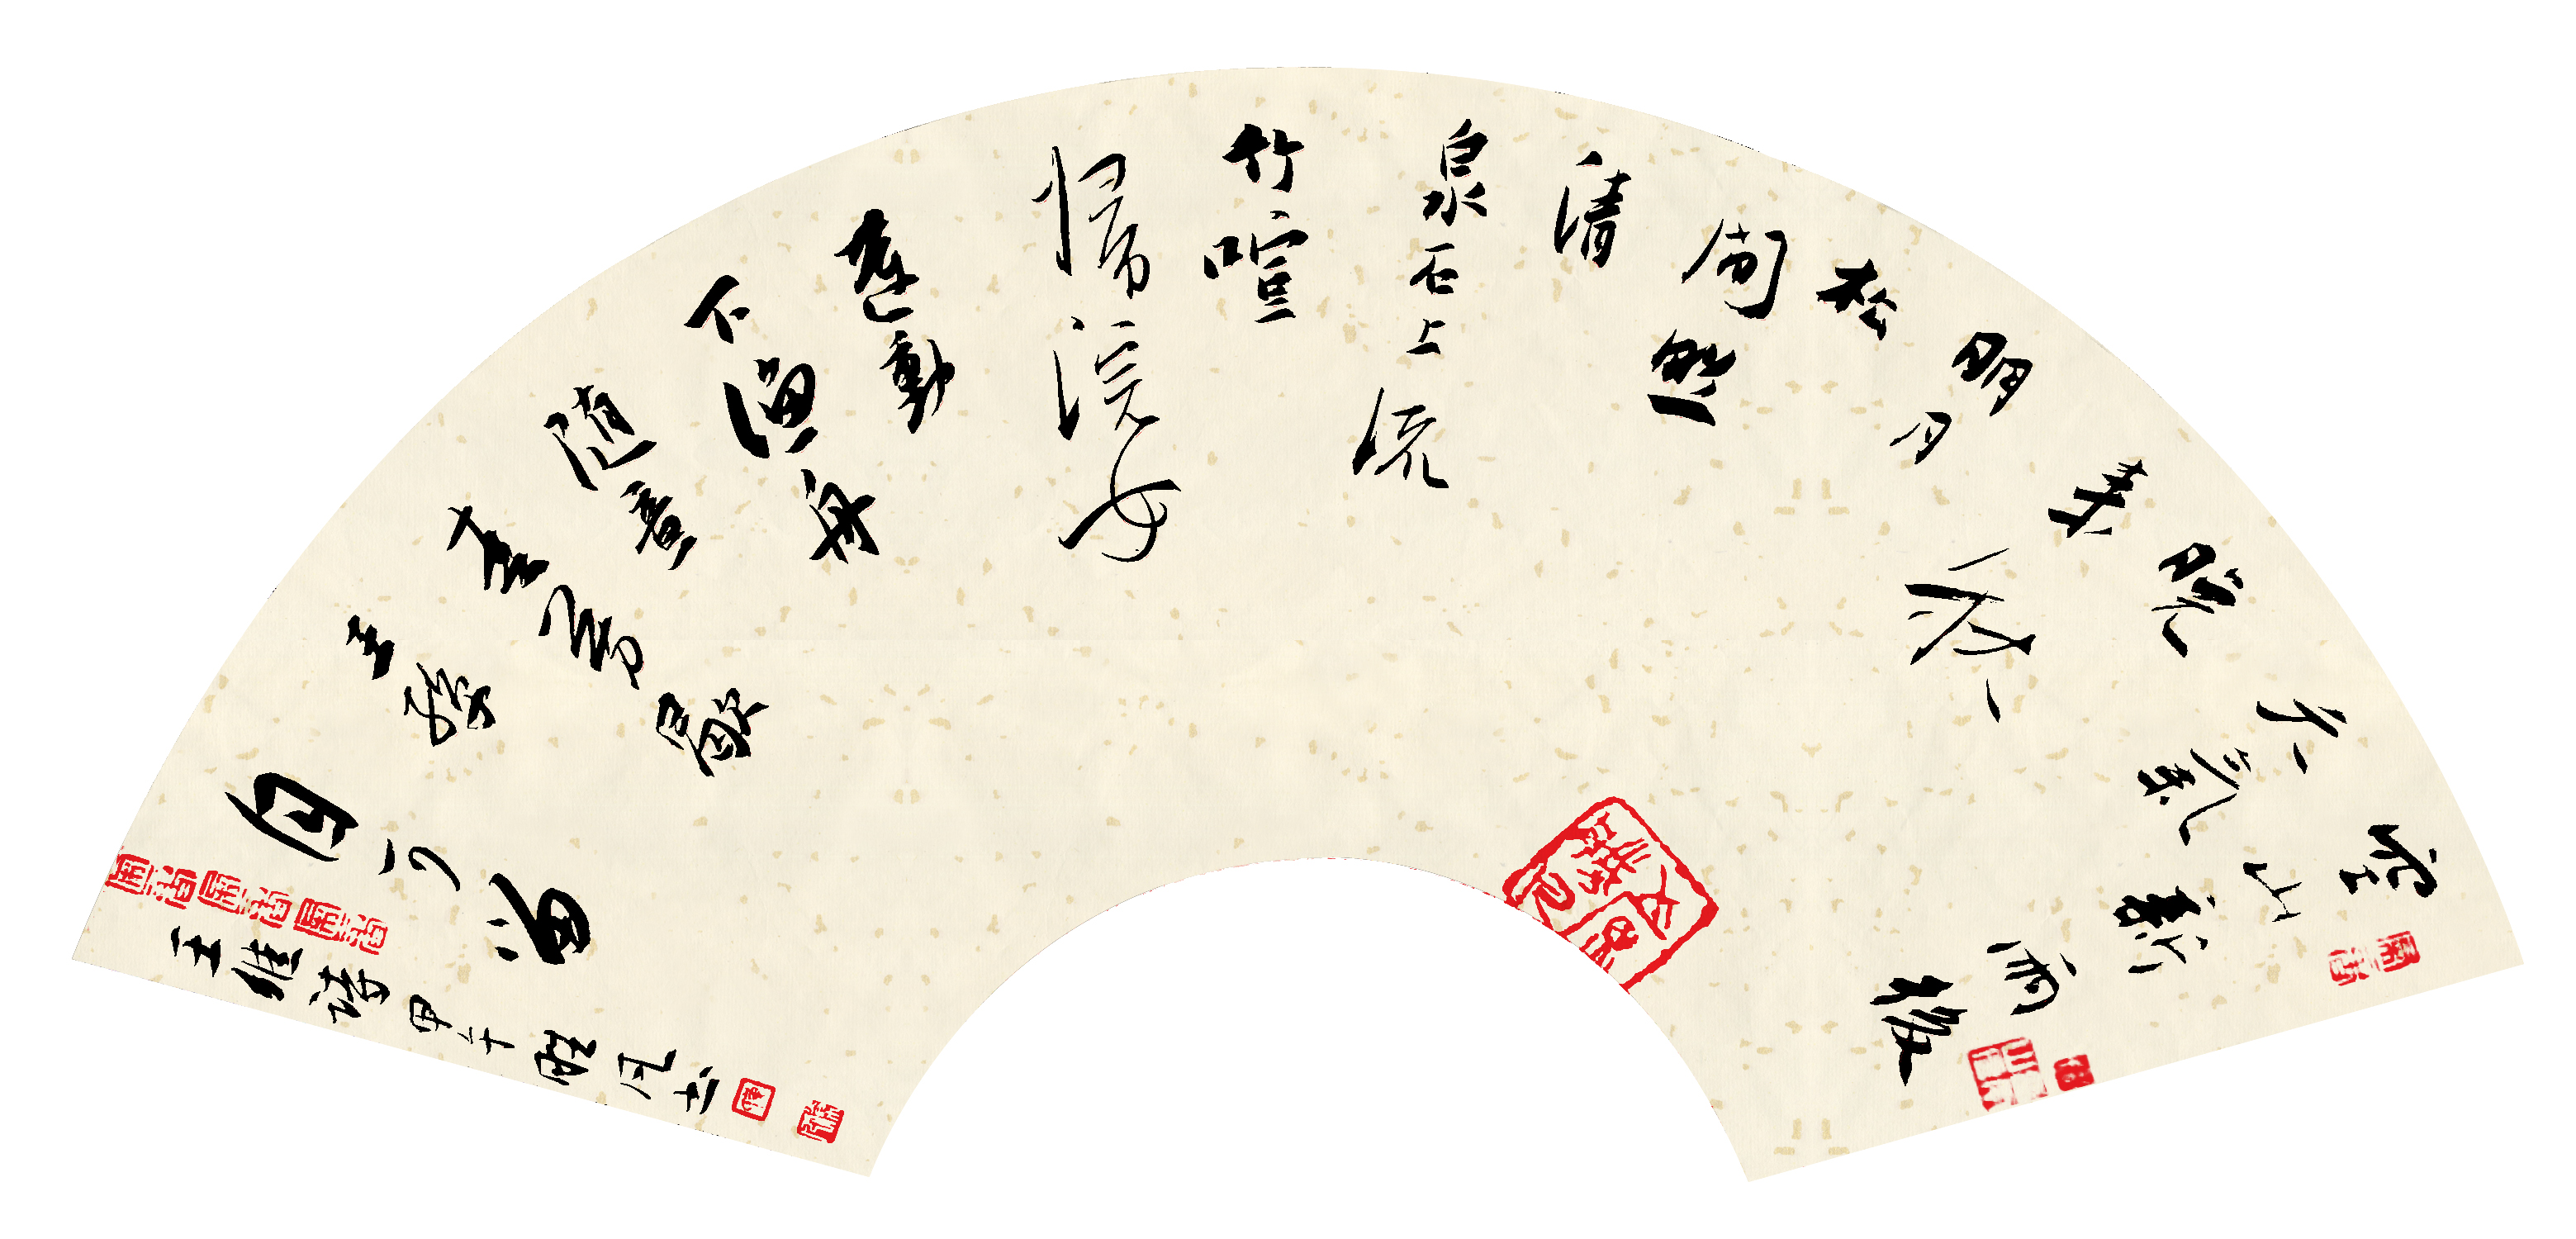 空山新雨後
天氣
晚
來秋
明月
松
間照
清
泉石上流
竹喧
歸浣女
蓮動
下漁舟
隨意
春芳歇
王孫
自可留
王維詩甲午凡书